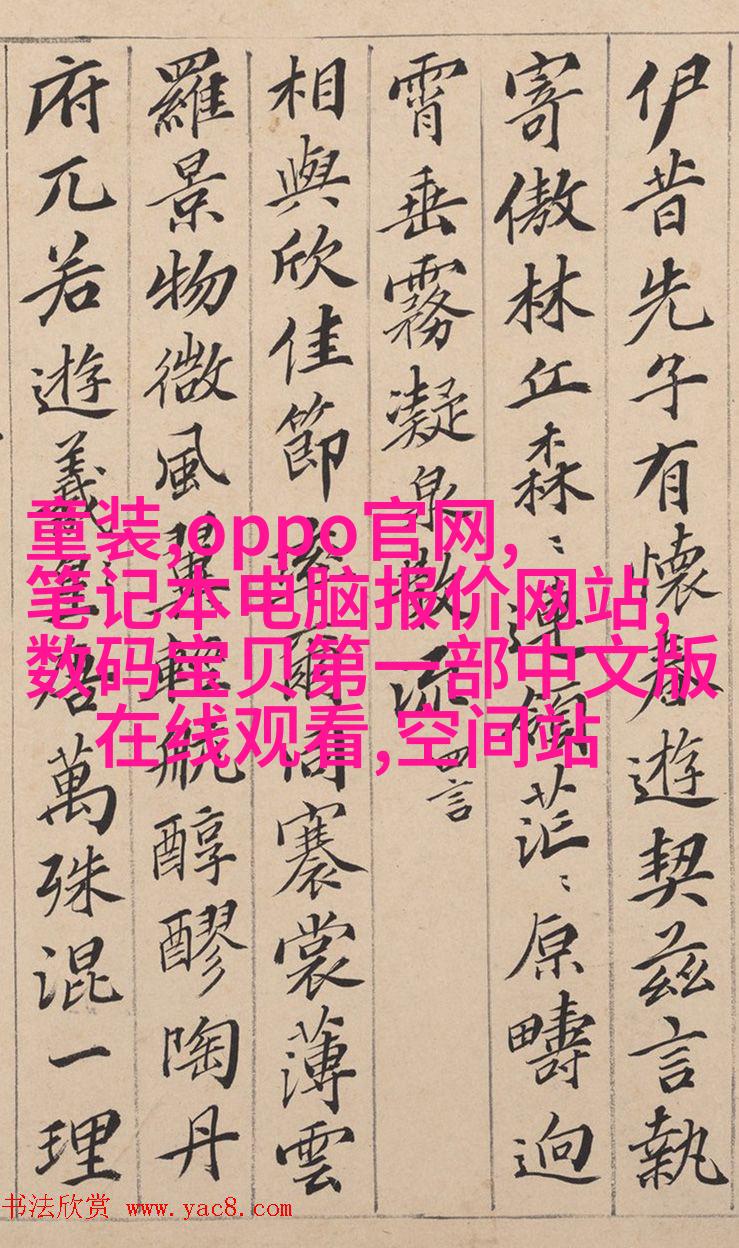 伊昔先子有懷春遊契茲言執
寄傲林丘森〻連嶺茫〻原疇逈
霄垂霧凝泉散流 四言
相與欣佳節率爾同褰裳薄雲
羅景物微風翼輕航醇醪陶丹
府兀若遊羲 萬殊混一理
童装,oppo官网,
笔记本电脑报价网站,
数码宝贝第一部中文版
在线观看,空间站
书法欣赏 www.yac8.com